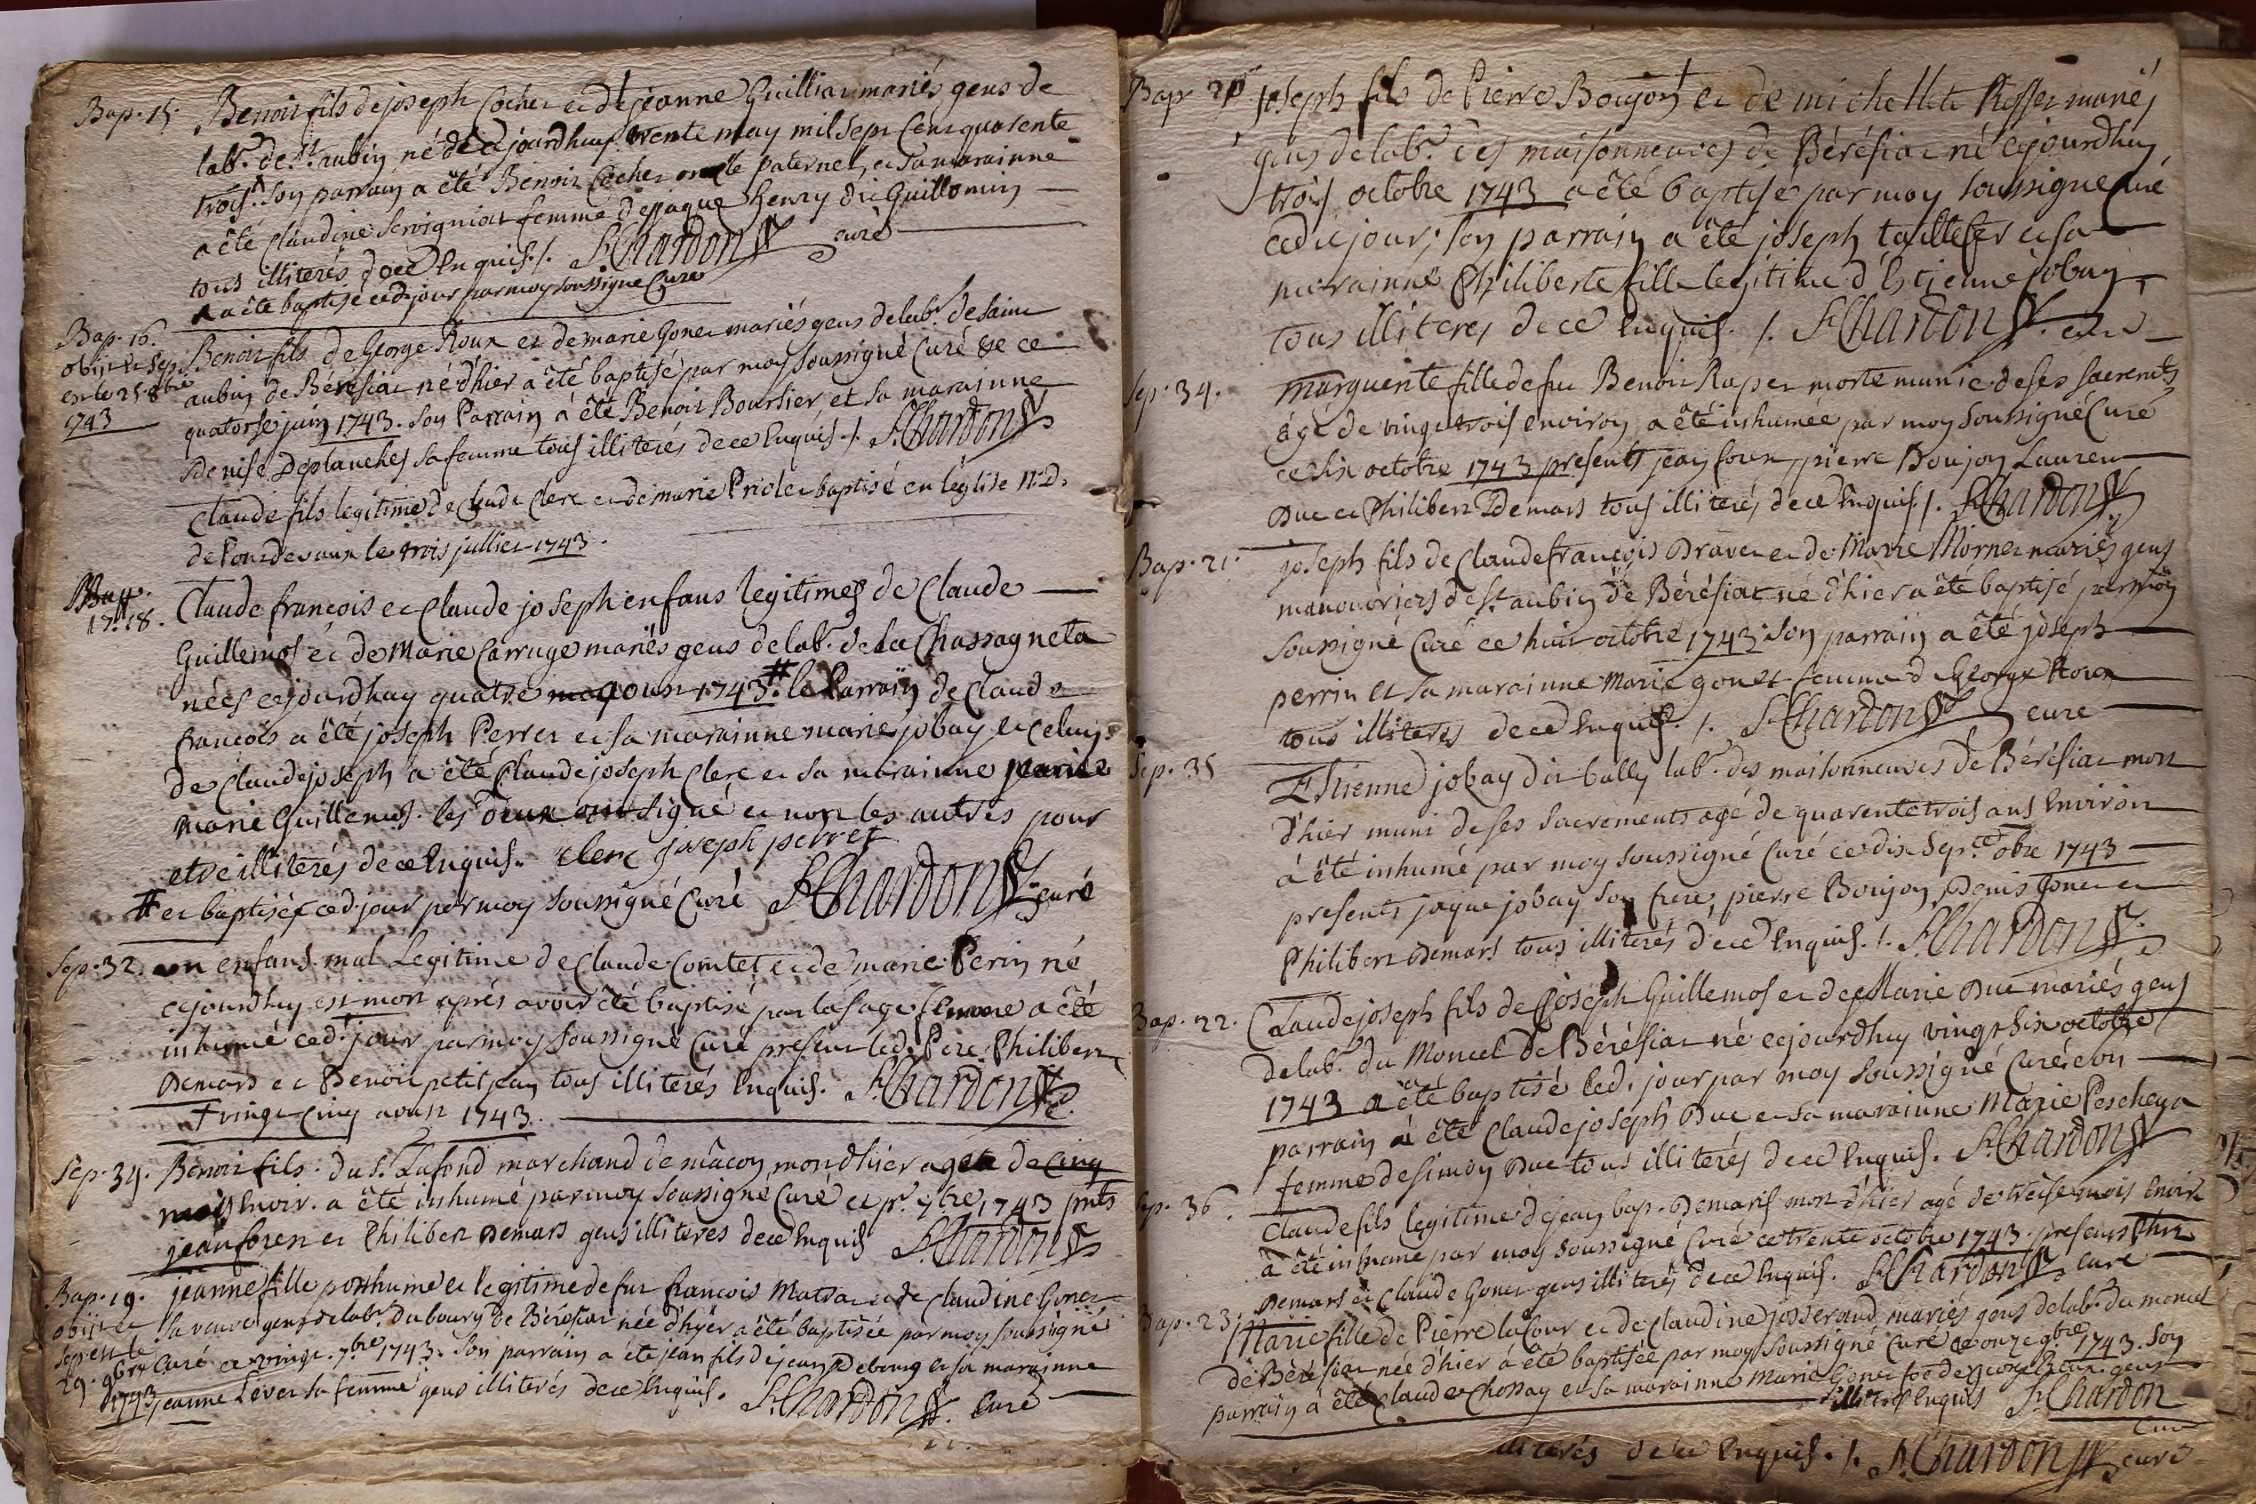 Bap. 15. Benoit fils de joseph Cocher et de jeanne Guilliat mariés gens de
labr. de St. aubin né de cejourdhuy trente may mil sept cent quarente
trois. Son parrain a êté Benoit Cocher oncle paternel, et sa marainne
a êté Claudine Servigniat femme de jaque henry dit Guillomin
tous illiterés de ce Enquis. /. St. Chardon curé
a êté baptisé ced. jour par moy soussigné Curé
Bap. 16. obiit et Sep. est le 25. 8bre 1743
Benoit fils de George Roux et de marie Gonet mariés gens de labr. de Saint
aubin de Bérésiat né d'hier a êté baptisé par moy soussigné Curé ce
quatorse juin 1743. Son Parrain a êté Benoit Boursier, et Sa marainne
Denise Deplanches sa femme tous illiterés de ce Enquis. /. St. Chardon
Claude fils legitime de Claude Clerc et de marie Priolet baptisé en l'église N. D.
de Pourdevaux le trois juillet 1743.
Bap. 17. 18. Claude françois et Claude joseph enfans legitimes de Claude
Guillemos et de Marie Carruge mariés gens de labr. de La Chassagneta
néés cejourdhuy quatre aoust 1743 # le Parrain de Claude
françois a êté joseph Perret et sa marainne marie jobay et celuy
de Claude joseph a êté Claude joseph Clerc et sa marainne
marie Guillemos. les deux ont signé et non les autres pour
etre illiterés de ce Enquis. Clerc joseph perret
# et baptisés ced. jour par moy soussigné Curé St. Chardon curé
Sep. 32. un enfant mal Legitime de Claude Comtet et de marie Perin né
cejourdhuy est mort aprés avoir êté baptisé par la sage femme a êté
inhumé ced. jour par moy soussigné Curé present led. Pere Philibert
Demars et Benoit petit jean tous illiterés Enquis. St. Chardon
+ vingt cinq aoust 1743.
Sep. 34. Benoit fils du Sr. Lafond marchand de mâcon mort d'hier agé de Cinq
mois Envir. a êté inhumé par moy soussigné Curé ce pr. 7bre 1743 pnts
jean forest et Philibert Demars gens illiteres de ce Enquis St. Chardon
Bap. 19. obiit et sep. est le 29. 9bre 1743
jeanne fille posthume et legitime de fut françois Matra et de Claudine Gonet
sa veuve gens de labr. du bourg de Bérésiat née d'hyer a êté baptisée par moy soussigné
Curé ce vingt. 7bre 1743. Son parrain a êté jean fils de jean Debourg et sa marainne
jeanne Levet sa femme gens illiterés de ce Enquis. St. Chardon Curé
Bap. joseph fils de Pierre Boujon et de michelle mariés
gens de labr. des maisonneuves de Bérésiat né cejourdhuy
trois octobre 1743 a êté baptisé par moy soussigné Curé
ced. jour; son parrain a êté joseph taillefer et sa
marainne Philiberte fille legitime d'Estienne jobay
tous illiteres de ce Enquis. /. St. Chardon curé
Sep. 34. marguerite fille de fut Benoit Rapet morte munie de ses sacrements
âgé de vingt trois Environ a êté inhumée par moy soussigné Curé
ce six octobre 1743 presents jean four, pierre Boujon Laurent
Duc et Philibert Demars tous illiterés de ce Enquis. /. St. Chardon
Bap. 21. joseph fils de Claude françois Dravet et de Marie Mornet mariés gens
manouvriers de St. aubin de Bérésiat né d'hier a êté baptisé par moy
soussigné Curé ce huit octobre 1743 Son parrain a êté joseph
perrin et sa marainne Marie gonet femme de George Roux
tous illiteres de ce Enquis. /. St. Chardon curé
Sep. 35 Estienne jobay dit bally labr. des maisonneuves de Bérésiat mort
d'hier muni de ses sacrements agé de quarente trois ans Environ
a êté inhumé par moy soussigné Curé ce dix Sept. obre 1743
presents jaque jobay son frere, pierre Boujon, Denis Gonet et
Philibert Demars tous illiterés de ce Enquis. /. St. Chardon
Bap. 22. Claude joseph fils de joseph Guillemos et de Marie Duc mariés gens
de labr. du Moncel de Bérésiat né cejourdhuy vingt Six octobre
1743 a êté baptisé led. jour par moy soussigné Curé. son
parrain a êté Claude joseph Duc et sa marainne Marie Pescheya
femme de simon Duc tous illiterés de ce Enquis. St. Chardon
Sep. 36. Claude fils legitime de jean bap. Demars mort d'hier agé de treise mois Envir.
a êté inhumé par moy soussigné Curé ce trente octobre 1743. presents Phil.
Demars et Claude Gonet gens illiterés de ce Enquis. St. Chardon curé
Bap. 23. Marie fille de Pierre laCour et de Claudine josserand mariés gens de labr. du moncel
de Bérésiat née d'hier a êté baptisée par moy soussigné Curé ce onze 9bre 1743. Son
parrain a êté Claude Chossay et sa marainne Marie Gonet fe. de George Roux. gens
illiteres Enquis St. Chardon
Curé
illiterés de ce Enquis. /. St. Chardon curé